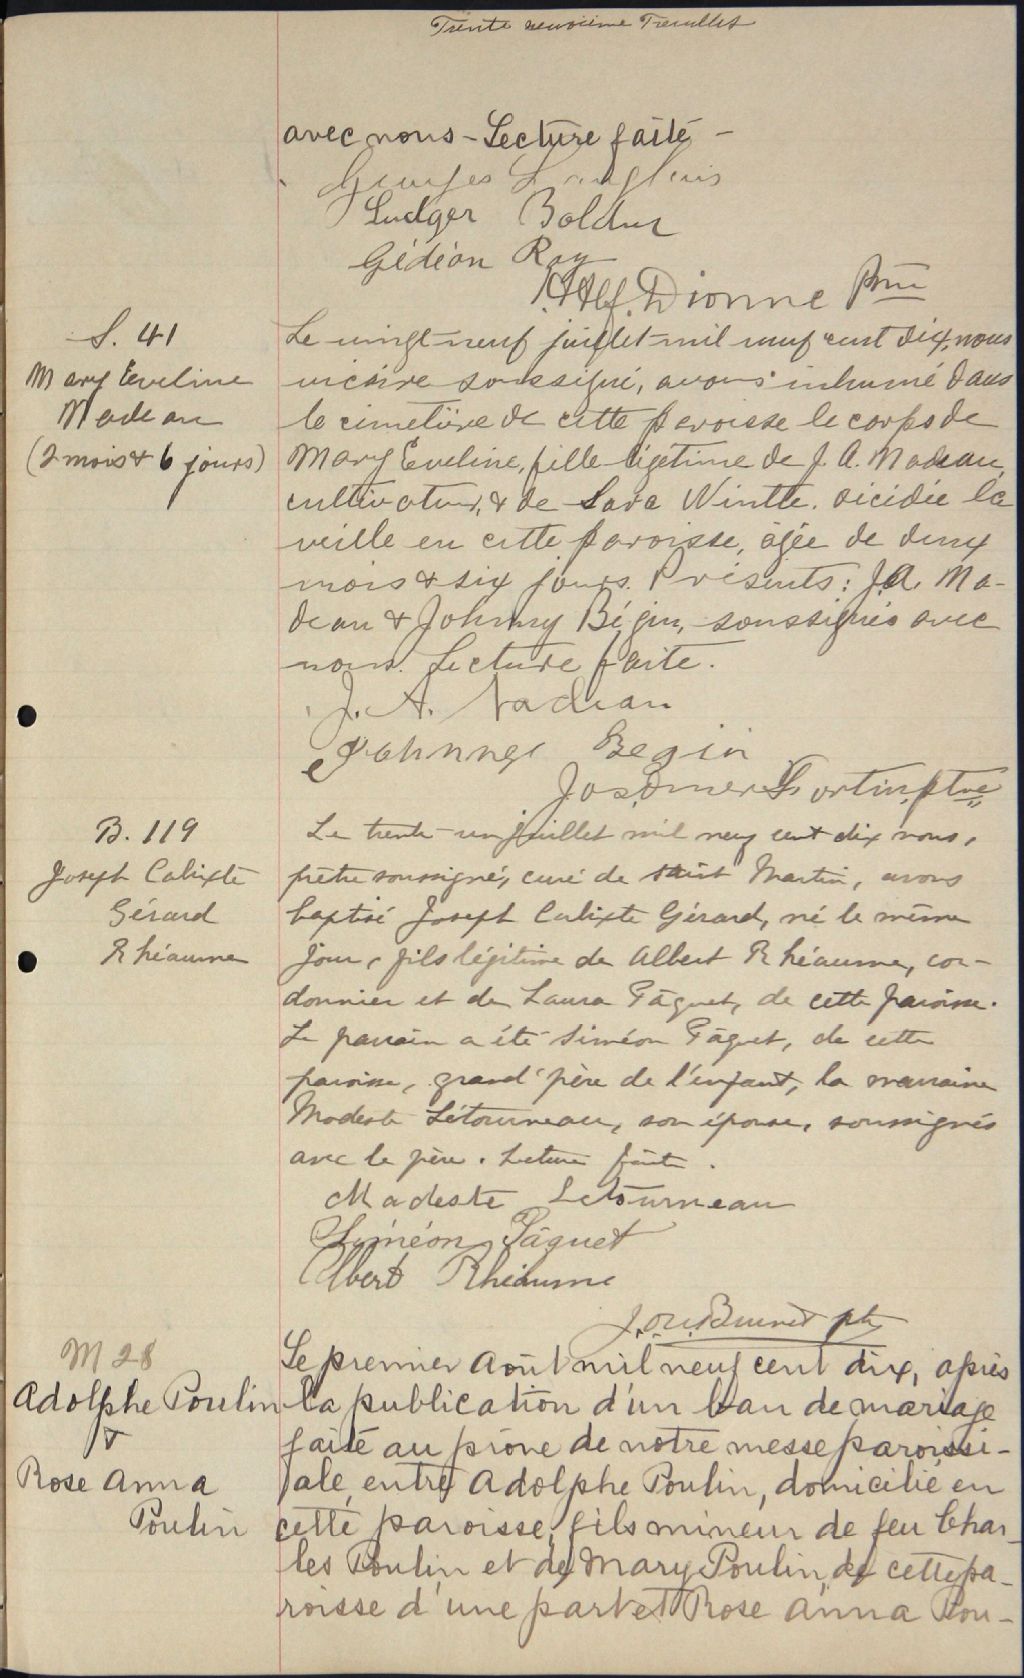 Trente neuvième Feuillet
avec nous - Lecture faite -
Georges Langlois
Ludger Bolduc
Gédéon Roy
Alf. Dionne Ptre
S. 41
Mary Eveline
Nadeau
(2 mois & 6 jours)
Le vingt-neuf juillet mil neuf cent dix, nous
vicaire soussigné, avons inhumé dans
le cimetière de cette paroisse le corps de
Mary Eveline, fille légitime de J. A. Nadeau,
cultivateur, & de Sara Wintle. décédée la
veille en cette paroisse, âgée de deux
mois & six jours. Présents: J.A. Na-
deau & Johnny Bégin, soussignés avec
nous. Lecture faite.
J. A. Nadeau
Johnney Begin
Jos. Omer Fortin, ptre
B. 119
Joseph Calixte
Gérard
Rhéaume
Le trente-un juillet mil neuf cent dix nous,
prêtre soussigné, curé de saint Martin, avons
baptisé Joseph Calixte Gérard, né le même
jour, fils légitime de Albert Rhéaume, cor-
donnier et de Laura Pâquet, de cette paroisse.
Le parrain a été Siméon Pâquet, de cette
paroisse, grand'père de l'enfant, la marraine
Modeste Létourneau, son épouse, soussignés
avec le père. Lecture faite.
Madeste Letourneau
Siméon Pâquet
Albert Rhéaume
ptr
M 28
Adolphe Poulin
&
Rose Anna
Poulin
Le premier Août mil neuf cent dix, après
la publication d'un ban de mariage
faite au prône de notre messe paroissi-
ale, entre Adolphe Poulin, domicilié en
cette paroisse, fils mineur de feu Char-
les Poulin et de Mary Poulin, de cette pa-
roisse d'une part et Rose Anna Pou-